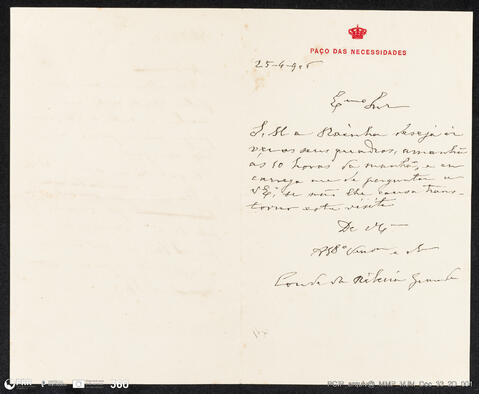 PAÇO DAS NECESSIDADES
25-4-905
Exmo Snr
S. M a Rainha deseja ir
ver os seus quadros, amanhã
ás 10 horas da manhã, e en
carrega me de perguntar a
V Exa se não lhe causa trans
torno esta visita
De V Ex
Conde da Ribeira Grande